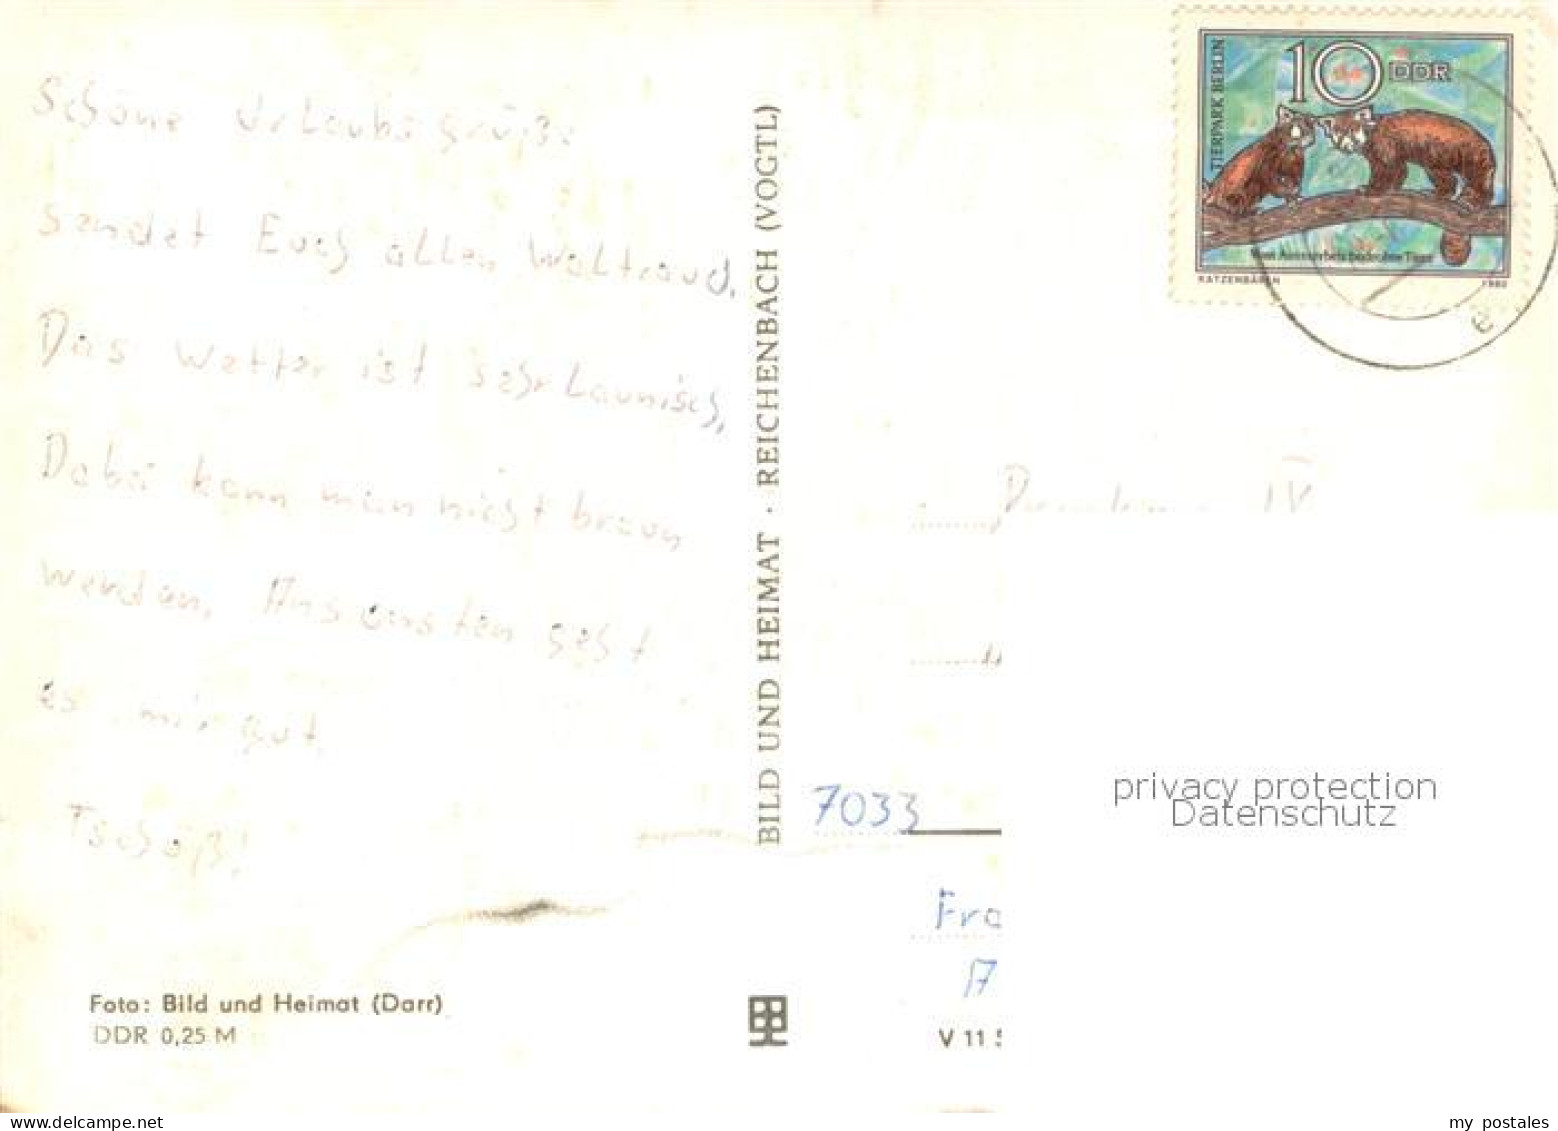 Schöne Urlaubsgrüße
sendet Euch allen Waltraud.
Das Wetter ist sehr Launisch,
Dabei kann man nicht braun
werden. Ansonsten geht
es mir gut.
Tschüß!
Foto: Bild und Heimat (Darr)
DDR 0,25 M
BILD UND HEIMAT · REICHENBACH (VOGTL)
TIERPARK BERLIN
10 DDR
Vom Aussterben bedrohte Tiere
KATZENBÄREN 1980
IV
7033
Fra
A
V 11 5
privacy protection
Datenschutz
my postales